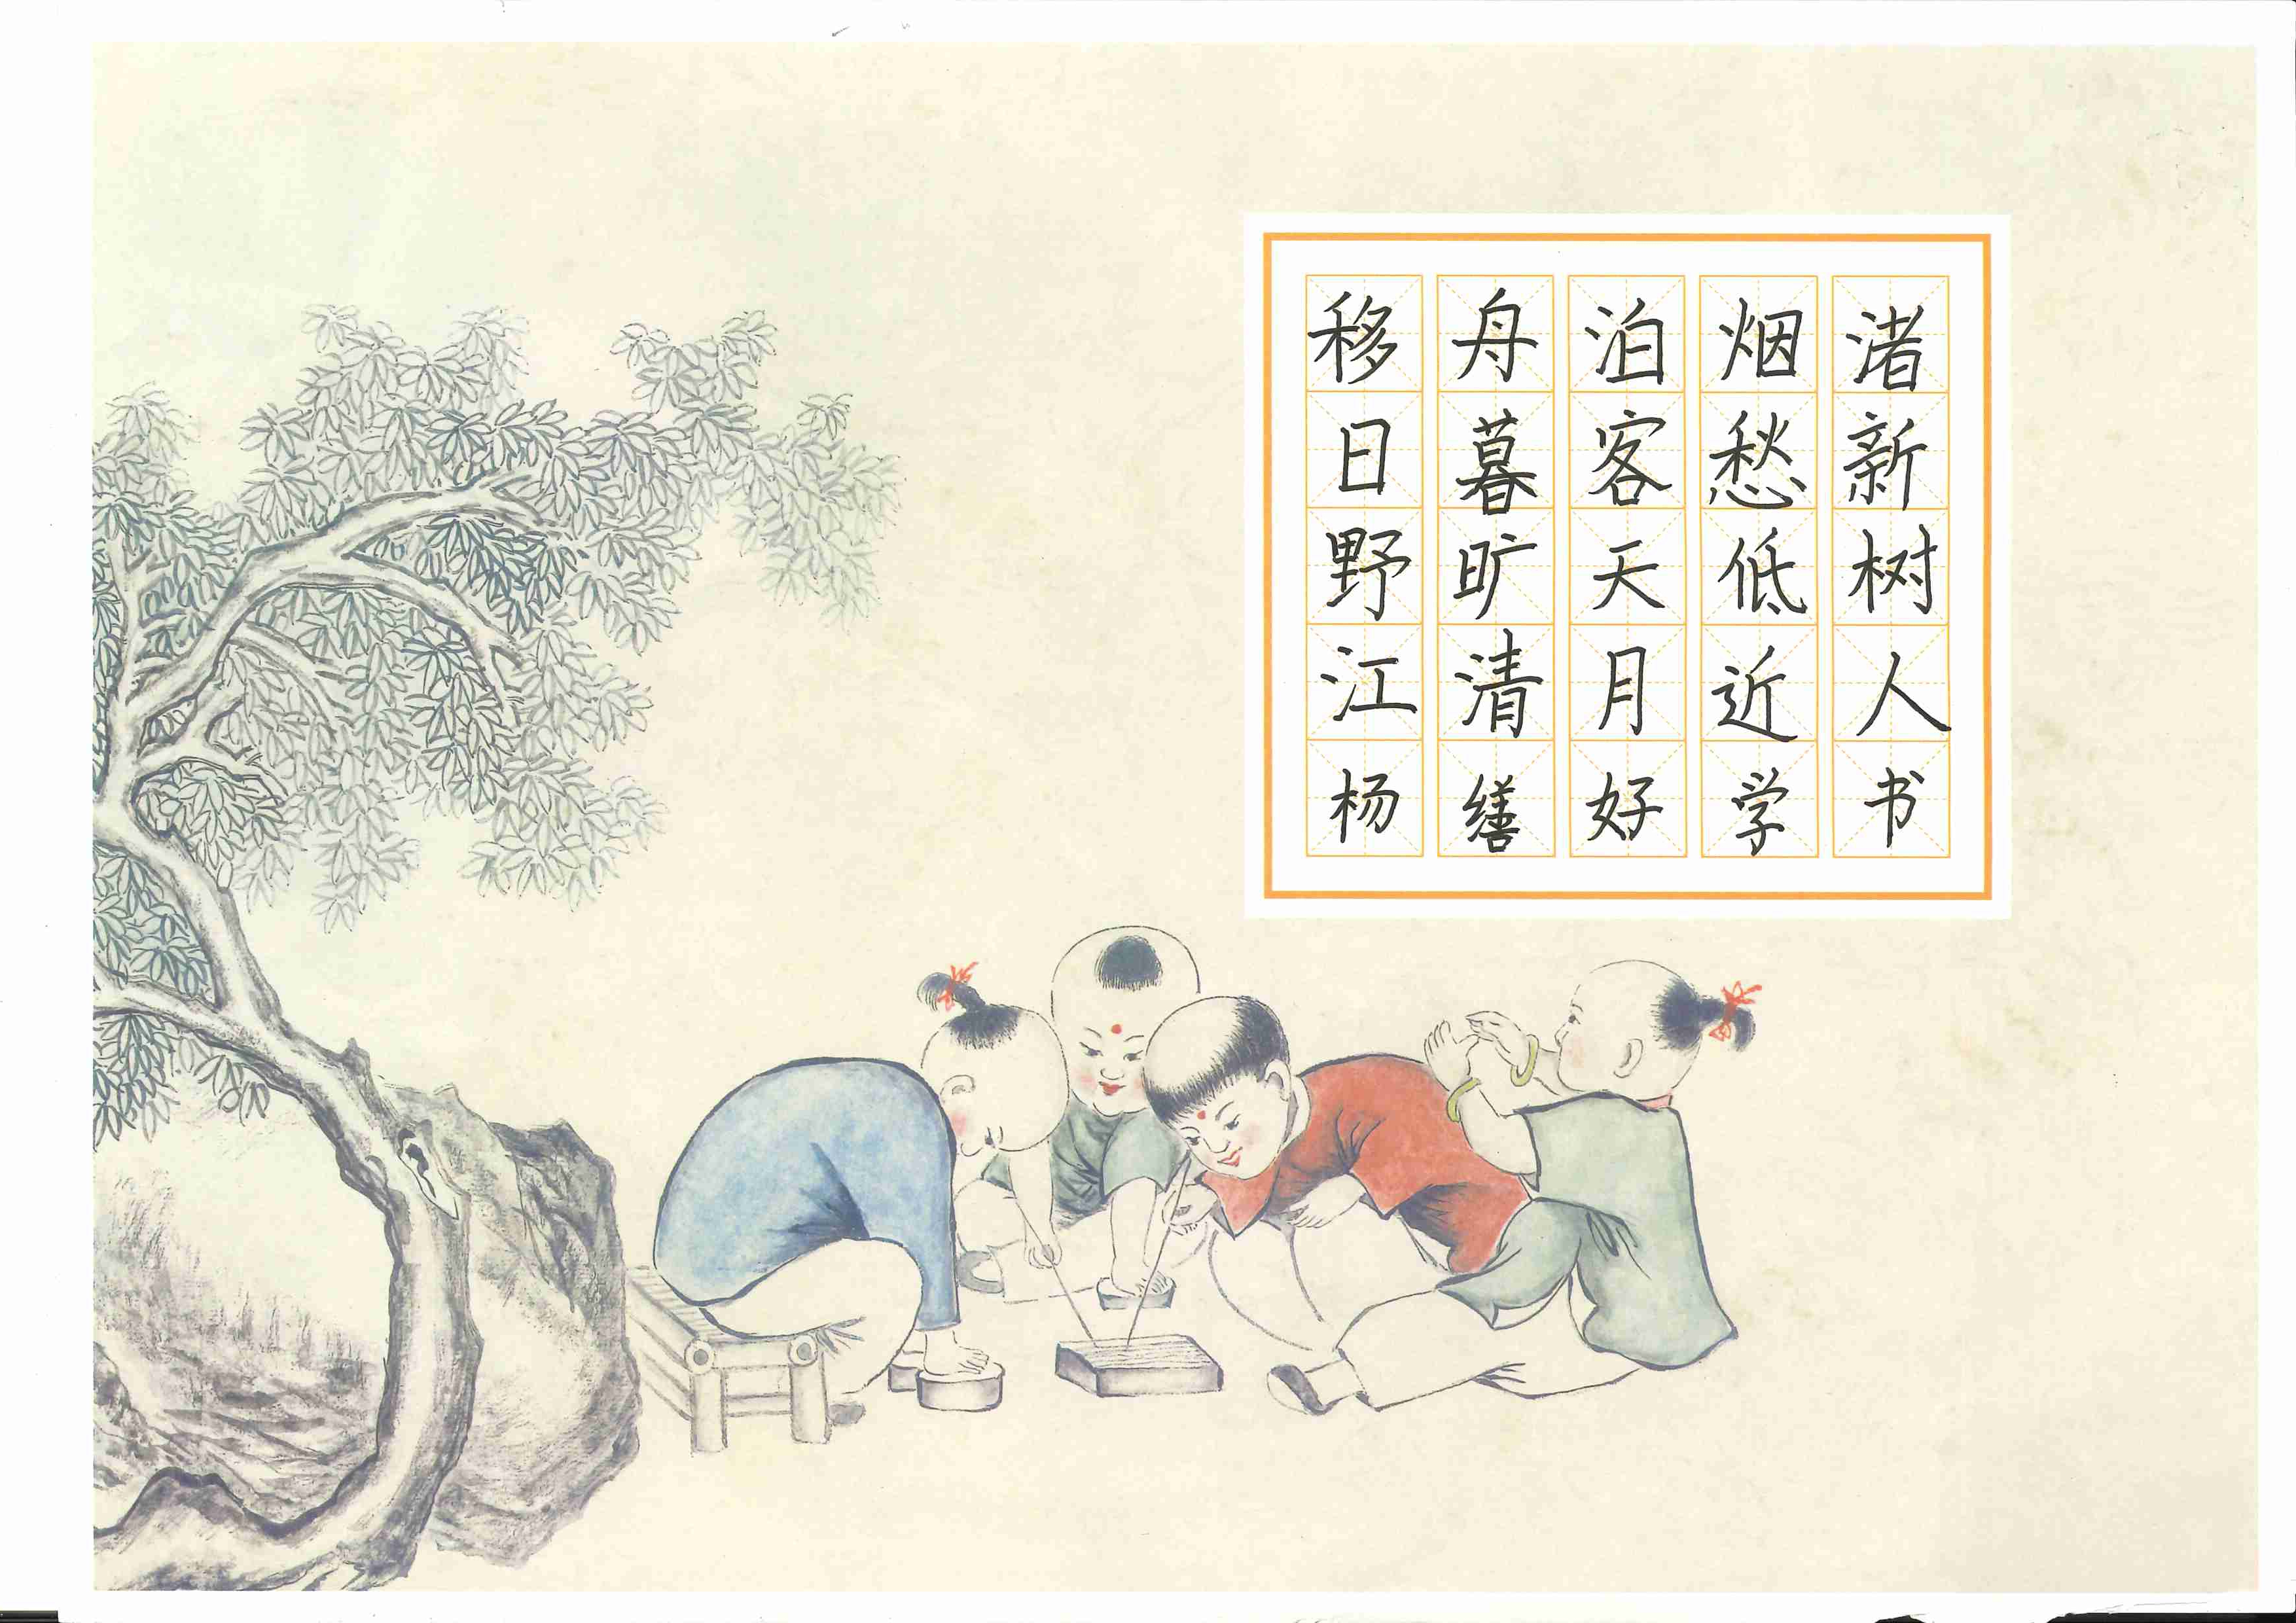 移舟泊烟渚
日暮客愁新
野旷天低树
江清月近人
杨缮好学书